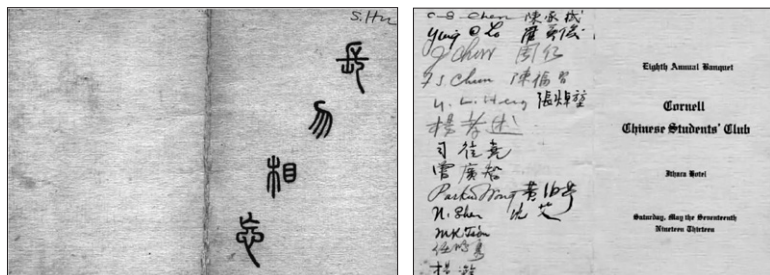 S. Hu
長
勿
相
忘
C-S-Chen 陳承栻
Ying D Lo 羅
J Chow 周仁
F S. Chun 陳福習
張焯堃
楊孝述
司徒堯
曹廣智
Parkin Wong 黃伯芹
N. Shen 沈艾
M K Tsen
任鴻雋
楊
Eighth Annual Banquet
Cornell
Chinese Students' Club
Ithaca Hotel
Saturday, May the Seventeenth
Nineteen Thirteen